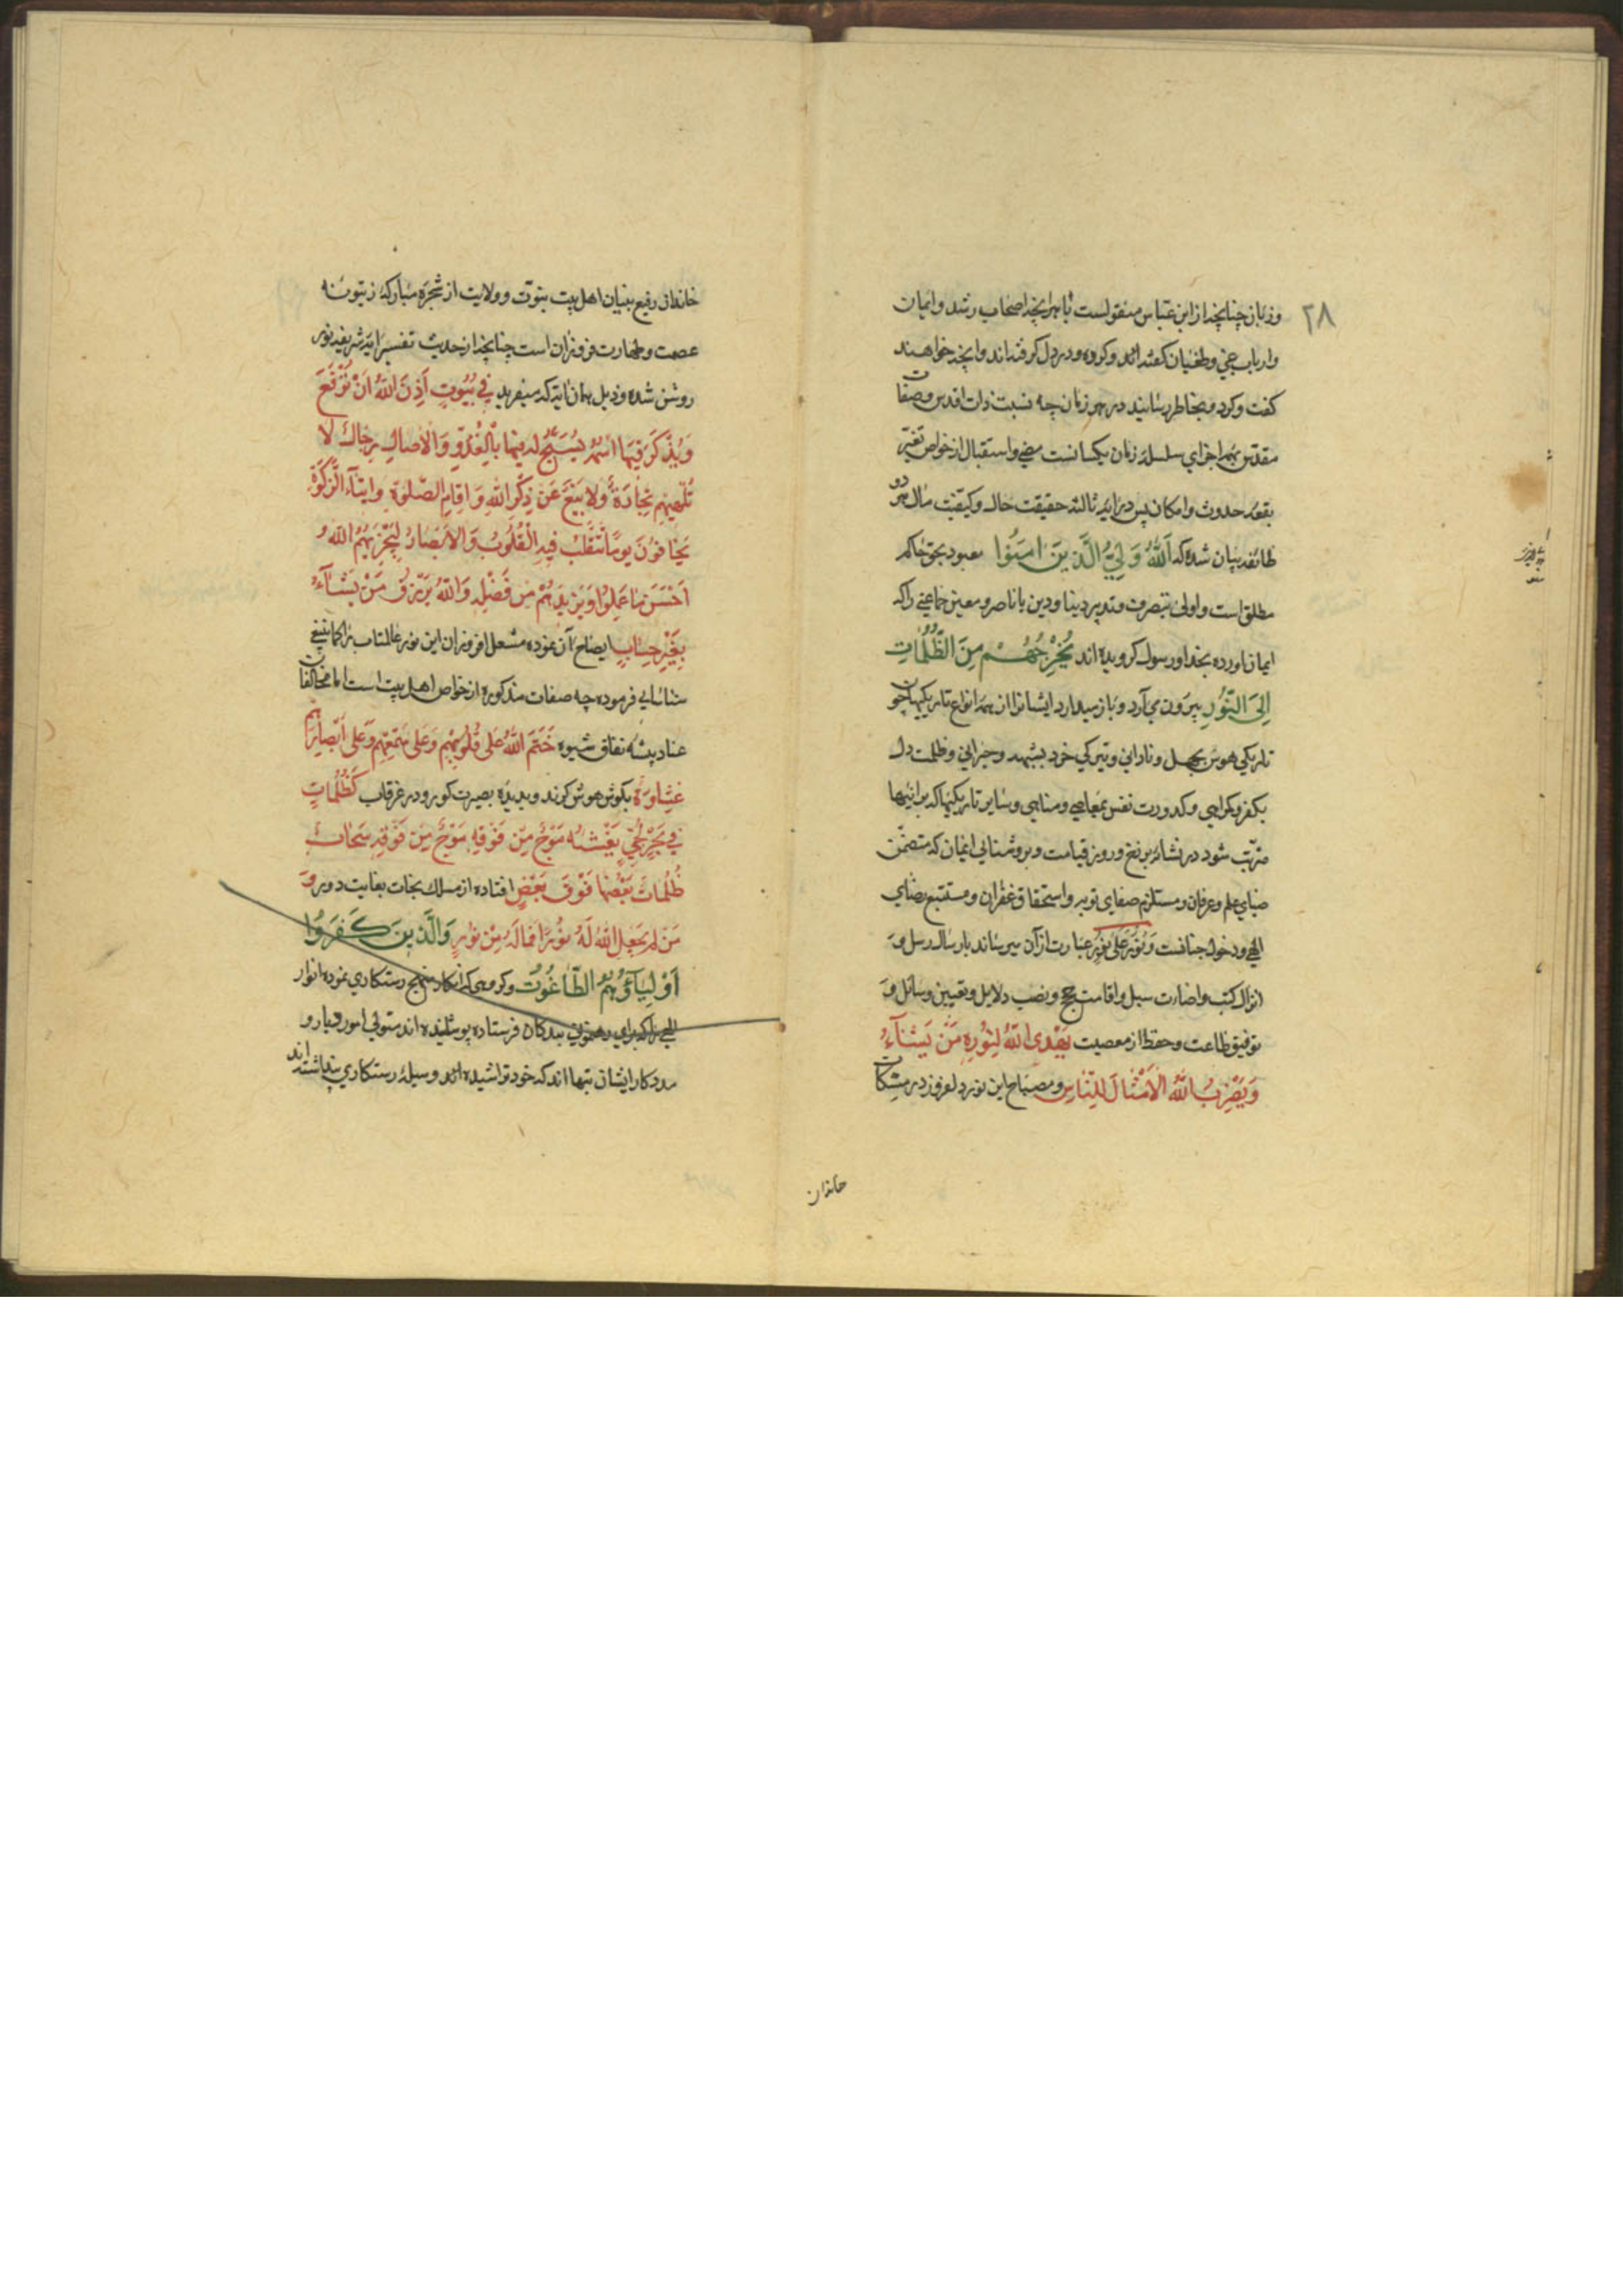 ۲۸
وزبان چنانچه از ابن عباس منقولست تا هر آنچه اصحاب رشد وایمان
وارباب غی وطغیان کفته‌اند وکرده ودر دل کرفته‌اند وآنچه خواهند
کفت وکرد وبخاطر رسانید در هر زمان چه نسبت ذات اقدس وصفات
مقدس بهمه اجزای سلسلۀ زمان یکسانست مضی واستقبال از خواص تغیّر
بقید حدوث وامکان پس در آیۀ ثالثه حقیقت حال وکیفیّت مآل هر دو
طائفه بیان شده که اَللّٰهُ وَلِیُّ الَّذِینَ اٰمَنُوا معبود بحق حاکم
مطلق است واولی بتصرف وتدبیر دنیا ودین یا ناصر ومعین جماعتی را که
ایمان آورده بخدا ورسول کرویده اند یُخْرِجُهُمْ مِنَ الظُّلُمَاتِ
اِلَی النُّورِ بیرون می‌آرد وباز میدارد ایشانرا از همه انواع تاریکیها چو
تاریکی هوش بجهل ونادانی وتیرکی خرد بشبهه وحیرانی وظلمت دل
بکفر وکمراهی وکدورت نفس بمعاصی ومناهی وسایر تاریکیها که بر اینها
مترتّب شود در نشائۀ برزخ وروز قیامت وبروشنایی ایمان که متضمّن
ضیای علم وعرفان ومستلزم صفای توبه واستحقاق غفران ومستتبع رضای
الهی ودخول جنانست وَنُورٌ عَلیٰ نُورٍ عبارت از آن میرساند بارسال رسل وَ
انزال کتب وانارت سبل واقامت حجج ونصب دلایل وتعیین وسائل وَ
توفیق طاعت وحفظ از معصیت یَهْدِی اللّٰهُ لِنُورِهِ مَنْ یَشَآءُ
وَیَضْرِبُ اللّٰهُ الْاَمْثَالَ لِلنَّاسِ ومصباح این نور دلفروز در مشکات
خاندان
خاندان رفیع بنیان اهل بیت نبوّت وولایت از شجرۀ مبارکۀ زیتونۀ
عصمت وطهارت فروزان است چنانچه از حدیث تفسیر آیۀ شریفه نور
روشن شده وذیل همان آیة که میفرید فِی بُیُوتٍ اَذِنَ اللّٰهُ اَنْ تُرْفَعَ
وَیُذْکَرَ فِیهَا اسْمُهُ یُسَبِّحُ لَهُ فِیهَا بِالْغُدُوِّ وَالْاٰصَالِ رِجَالٌ لَا
تُلْهِیهِمْ تِجَارَةٌ وَلَا بَیْعٌ عَنْ ذِکْرِ اللّٰهِ وَاِقَامِ الصَّلٰوةِ وَاِیتَآءِ الزَّکٰوةِ
یَخَافُونَ یَوْمًا تَتَقَلَّبُ فِیهِ الْقُلُوبُ وَالْاَبْصَارُ لِیَجْزِیَهُمُ اللّٰهُ
اَحْسَنَ مَا عَمِلُوا وَیَزِیدَهُمْ مِنْ فَضْلِهِ وَاللّٰهُ یَرْزُقُ مَنْ یَشَآءُ
بِغَیْرِ حِسَابٍ ایضاح آن نموده مشعل افروزان این نور عالمتاب را کما ینبغی
شناسایی فرموده چه صفات مذکوره از خواص اهل بیت است اما مخالفان
عناد پیشۀ نفاق شیوه خَتَمَ اللّٰهُ عَلیٰ قُلُوبِهِمْ وَعَلیٰ سَمْعِهِمْ وَعَلیٰ اَبْصَارِهِمْ
غِشَاوَةٌ بکوش هوش کرند وبدیدۀ بصیرت کور ودر غرقاب کَظُلُمَاتٍ
فِی بَحْرٍ لُجِّیٍّ یَغْشٰیهُ مَوْجٌ مِنْ فَوْقِهِ مَوْجٌ مِنْ فَوْقِهِ سَحَابٌ
ظُلُمَاتٌ بَعْضُهَا فَوْقَ بَعْضٍ افتاده از مسلک نجات بغایت دور وَ
مَنْ لَمْ یَجْعَلِ اللّٰهُ لَهُ نُورًا فَمَا لَهُ مِنْ نُورٍ وَالَّذِینَ کَفَرُوا
اَوْلِیَآؤُهُمُ الطَّاغُوتُ وکروهی که انکار منهج رستکاری نموده انوار
الهی را که برای رهنمونی بندکان فرستاده پوشانیده اند متولی امور ویار و
مددکار ایشان بتهااند که خود تراشیده اند ووسیلۀ رستکاری پنداشته اند